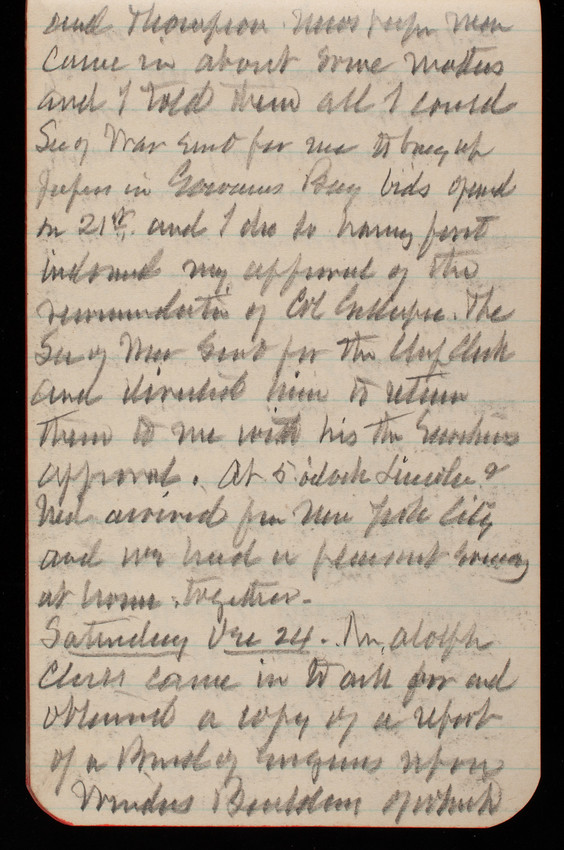 and Thompson newspaper men
came in about some matters
and I told them all I could
Sec of War sent for me to bring up
papers in Gowanus Bay bids opened
on 21st, and I did so having first
indorsed my approval of the
recommendation of Col Gillespie. The
Sec of War sent for the Chf Clerk
and directed him to return
them to me with his the Secretarys
approval. At 5 o'clock Lincoln &
Ned arrived from New York City
and we had a pleasant evening
at home together.
Saturday Dec 24. Mr. Adolph
Cluss came in to ask for and
obtained a copy of a report
of a Board of Engineers upon
Winders Building of which